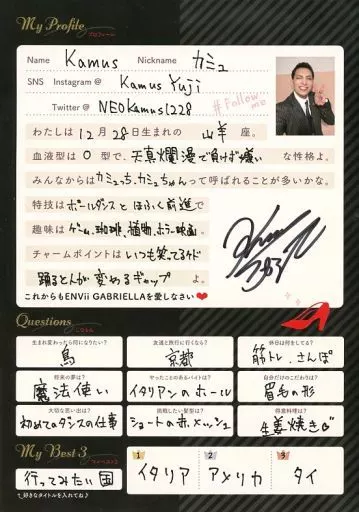 My Profile
プロフィール
Name Kamus Nickname カミュ
SNS Instagram@ Kamus Yuji
Twitter@ NEOKamus1228
#Follow me
わたしは12月28日生まれの 山羊 座。
血液型は O 型で、天真爛漫で負けず嫌い な性格よ。
みんなからはカミュっち、カミュちゃんって呼ばれることが多いかな。
特技はポールダンスとほふく前進で
趣味はゲーム、珈琲、植物、ホラー映画。
チャームポイントはいつも笑てるケド
踊るとんが変わるギャップ よ。
これからもENVii GABRIELLAを愛しなさい❤
Questions
しつもん
生まれ変わったら何になりたい?
鳥
友達と旅行に行くなら?
京都
休日は何をしてる?
筋トレ、さんぽ
将来の夢は?
魔法使い
やったことのあるバイトは?
イタリアンのホール
自分だけのこだわりは?
眉毛の形
大切な思い出は?
初めてのダンスの仕事
挑戦したい髪型は?
ショートの赤メッシュ
得意料理は?
生姜焼き
My Best 3
マイベスト3
行ってみたい国
好きなタイトルを入れてね♪
1 イタリア
2 アメリカ
3 タイ